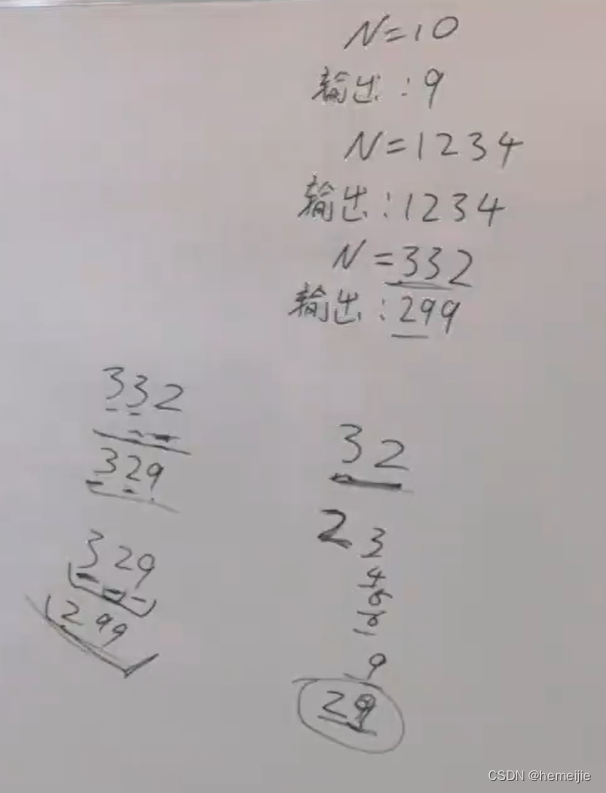 N=10
输出:9
N=1234
输出:1234
N=332
输出:299
332
329
329
299
32
2 3
4
9
29
CSDN @hemeijie